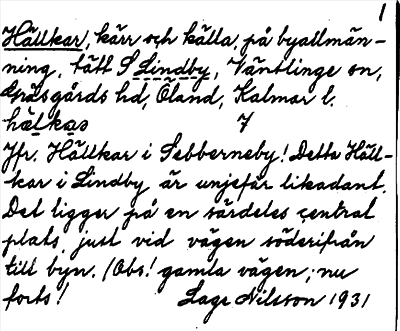 1
Hällkar, kärr och källa, på byallmän-
ning, tätt S Lindby, Ventlinge sn,
Gräsgårds hd, Öland, Kalmar l.
hälkas 7
Jfr. Hällkar i Sebberneby! Detta Häll-
kar i Lindby är unjefär likadant.
Det ligger på en särdeles central
plats, just vid vägen söderifrån
till byn. (Obs! gamla vägen; nu
forts! Lage Nilsson 1931